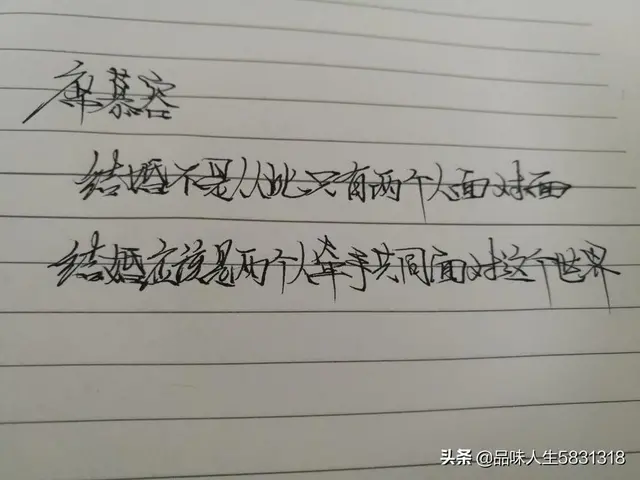 席慕容
结婚不是从此只有两个人面对面
结婚应该是两个人牵手共同面对这个世界
头条 @品味人生5831318